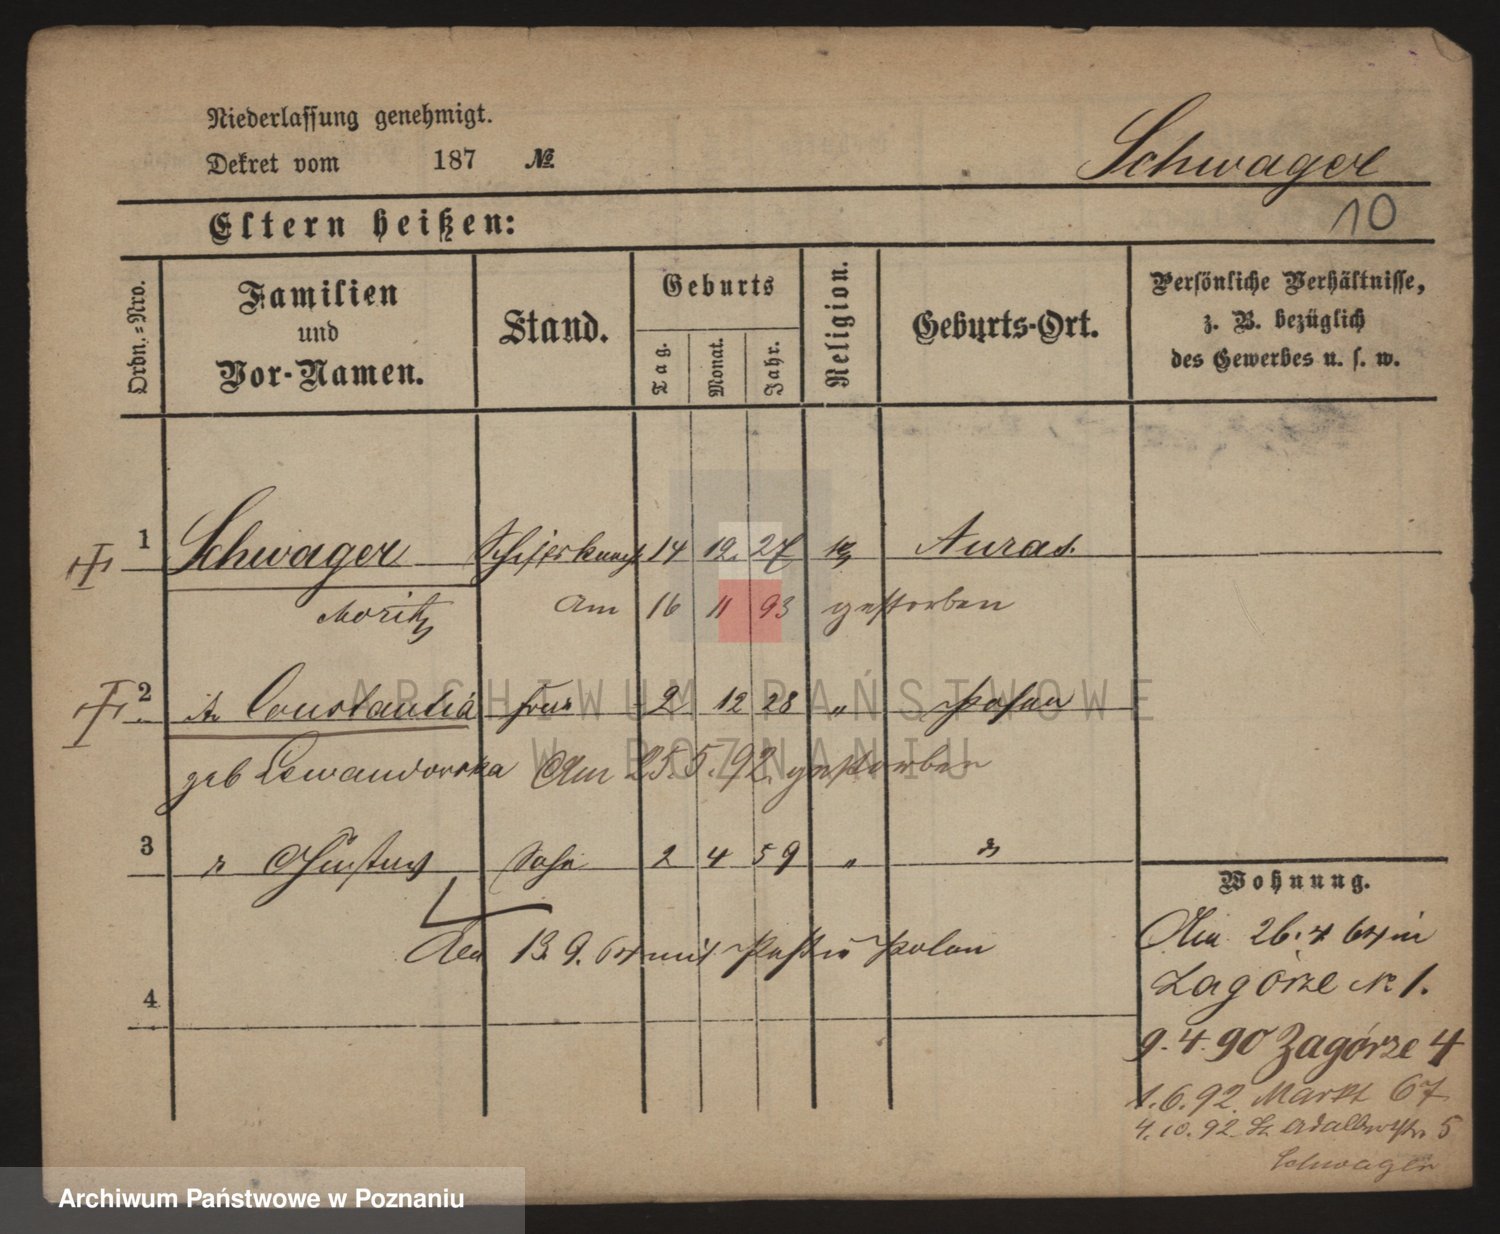 Niederlassung genehmigt.
Dekret vom 187 №
Schwager
10
Eltern heißen:
Ordn.-Nro.
Familien
und
Vor-Namen.
Stand.
Geburts
Tag.
Monat.
Jahr.
Religion.
Geburts-Ort.
Persönliche Verhältnisse,
z. B. bezüglich
des Gewerbes u. s. w.
1 Schwager 14 12. 27 Auras.
Moritz Am 16 11 93 gestorben
2 Constantia Frau 2 12 28 " Posen
geb Lewandowska Am 25.5.92. gestorben
3 Gustav Sohn 2 4 59 "
13. 9. mit Posen
4
Wohnung.
26. 4 64 in
Zagórze № 1.
9. 4. 90 Zagórze 4
1. 6. 92. Markt 67
4. 10. 92. Adalbertstr. 5
Schwager
ARCHIWUM PAŃSTWOWE
W POZNANIU
Archiwum Państwowe w Poznaniu